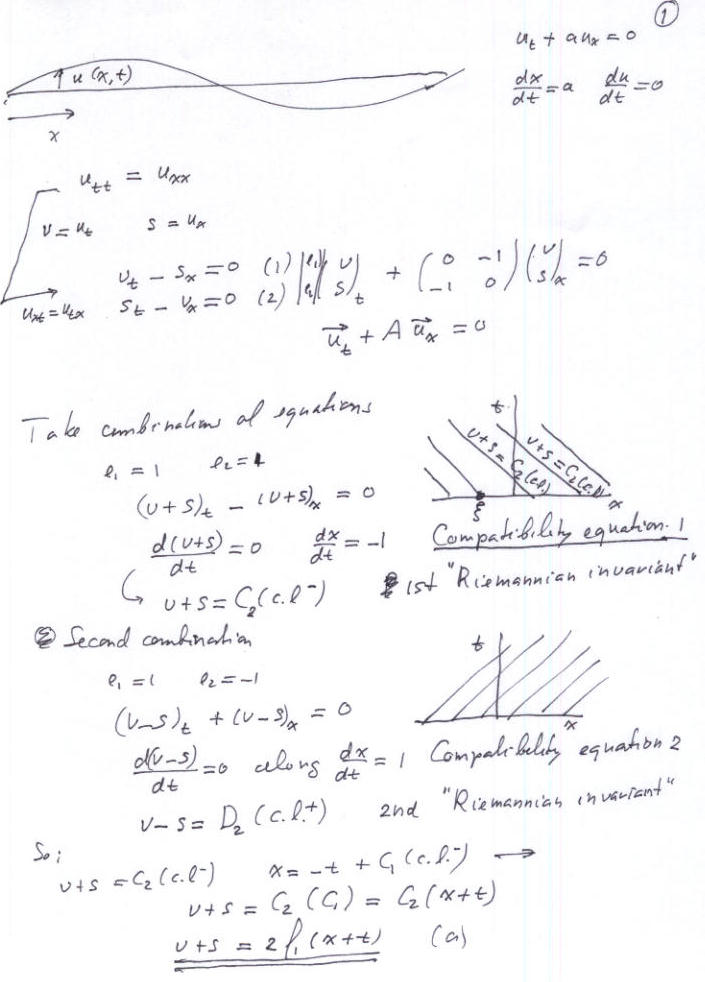 ①
u_t + a u_x = 0
dx/dt = a   du/dt = 0
u (x, t)
x
u_tt = u_xx
v = u_t   s = u_x
v_t - s_x = 0 (1) | l_1 | ( v s )_t + ( 0 -1 -1 0 ) ( v s )_x = 0
u_xt = u_tx   s_t - v_x = 0 (2) | l_2 |
u⃗_t + A u⃗_x = 0
Take combinations of equations
l_1 = 1   l_2 = 1
(v+s)_t - (v+s)_x = 0
d(v+s)/dt = 0   dx/dt = -1
v+s = C_2 (c.l^-)
t
v+s = C_2(c.l)
v+s = C_2(c.l)
x
ξ
Compatibility equation 1
1st "Riemannian invariant"
Second combination
l_1 = 1   l_2 = -1
(v-s)_t + (v-s)_x = 0
d(v-s)/dt = 0 along dx/dt = 1
v - s = D_2 (c.l.+)
t
x
Compatibility equation 2
2nd "Riemannian invariant"
So:
v+s = C_2 (c.l^-)   x = -t + C_1 (c.l.^-) →
v+s = C_2 (C_1) = C_2 (x+t)
v+s = 2 f_1 (x+t)   (a)